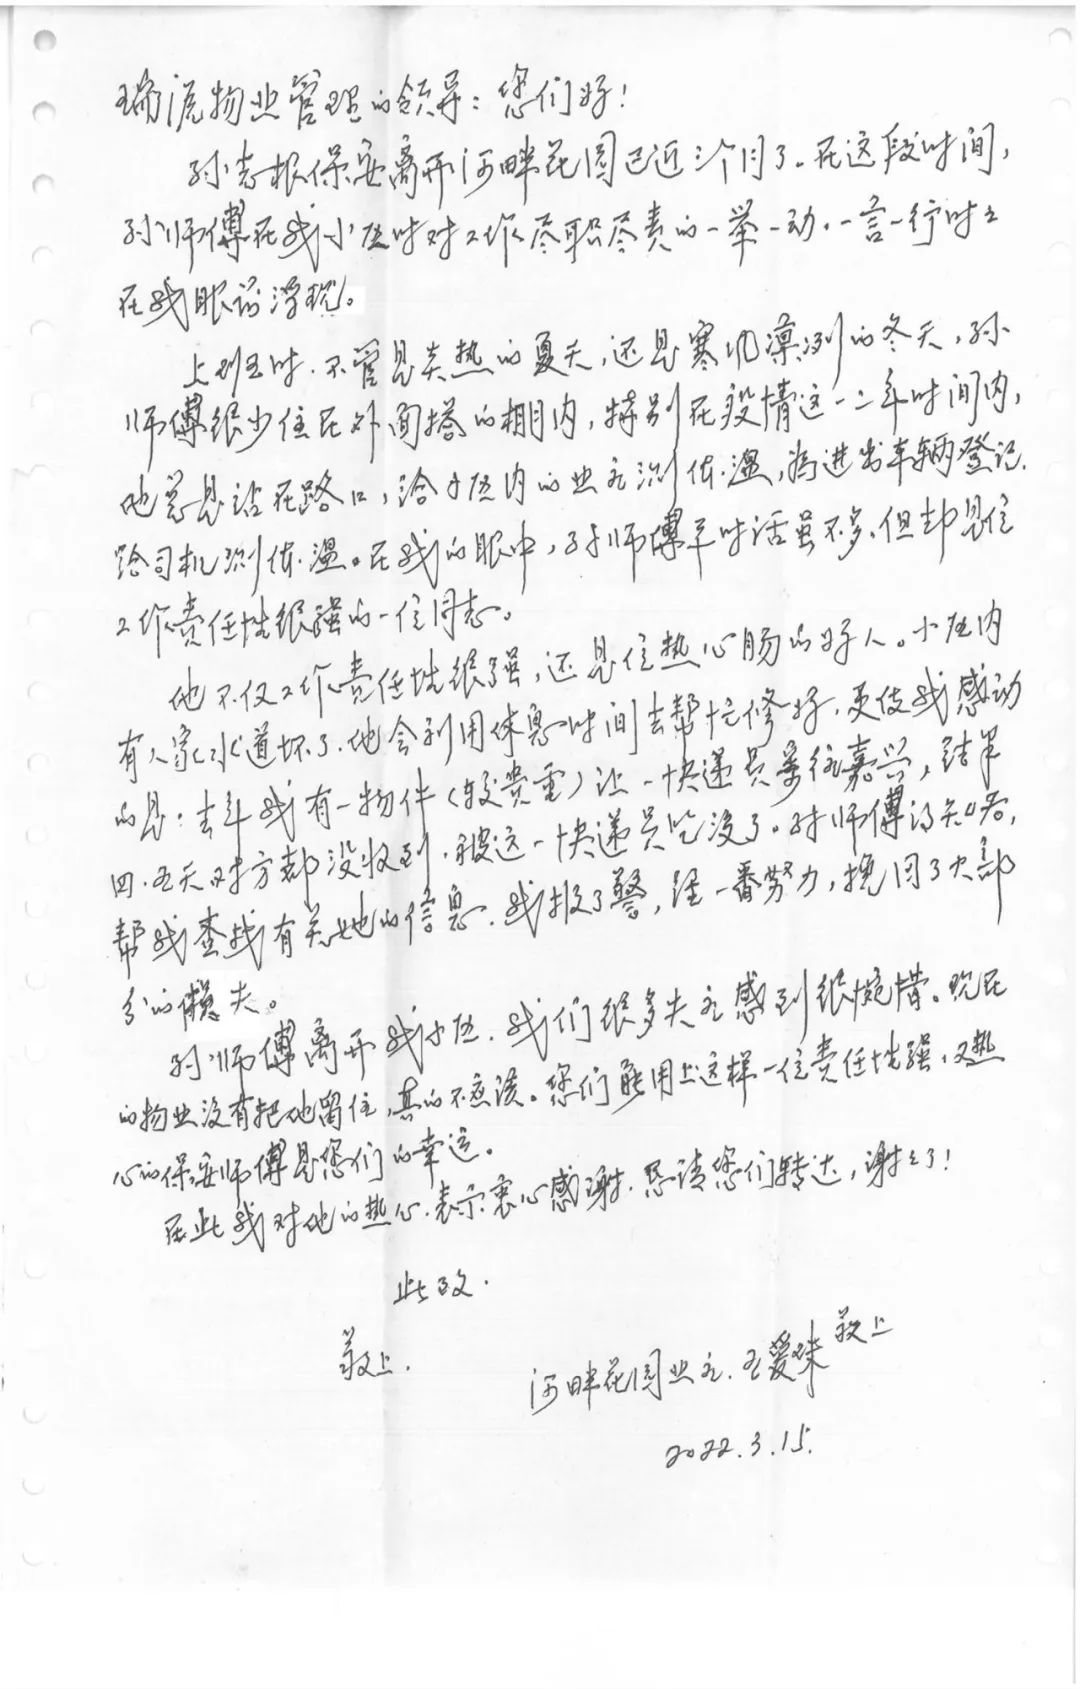 瑞流物业管理的领导：您们好！
孙志根保安离开河畔花园已近三个月了。在这段时间，
孙师傅在我小区时对工作尽职尽责的一举一动．一言一行时々
在我眼前浮现。
上班时．不管是炎热的夏天，还是寒风凛冽的冬天，孙
师傅很少住在外面搭的棚内，特别在疫情这一二年时间内，
他总是站在路口，给小区内的业主测体温，为进出车辆登记．
给司机测体温。在我的眼中，孙师傅平时话虽不多．但却是位
工作责任性很强的一位同志。
他不仅工作责任性很强，还是位热心肠的好人。小区内
有人家水道坏了．他会利用休息时间去帮忙修好．更使我感动
的是：去年我有一物件（较贵重）让一快递员寄往嘉兴，结果
四．五天对方都没收到．被这一快递员吃没了。孙师傅得知后，
帮我查找有关她的信息．我报了警，经一番努力，挽回了大部
分的损失。
孙师傅离开我小区．我们很多失主感到很惋惜。现在
的物业没有把他留住，真的不应该。您们能用上这样一位责任性强．又热
心的保安师傅是您们的幸运。
在此我对他的热心．表示衷心感谢．恳请您们转达，谢々了！
此致．
敬上．
河畔花园业主．王爱珠 敬上
2022.3.15.